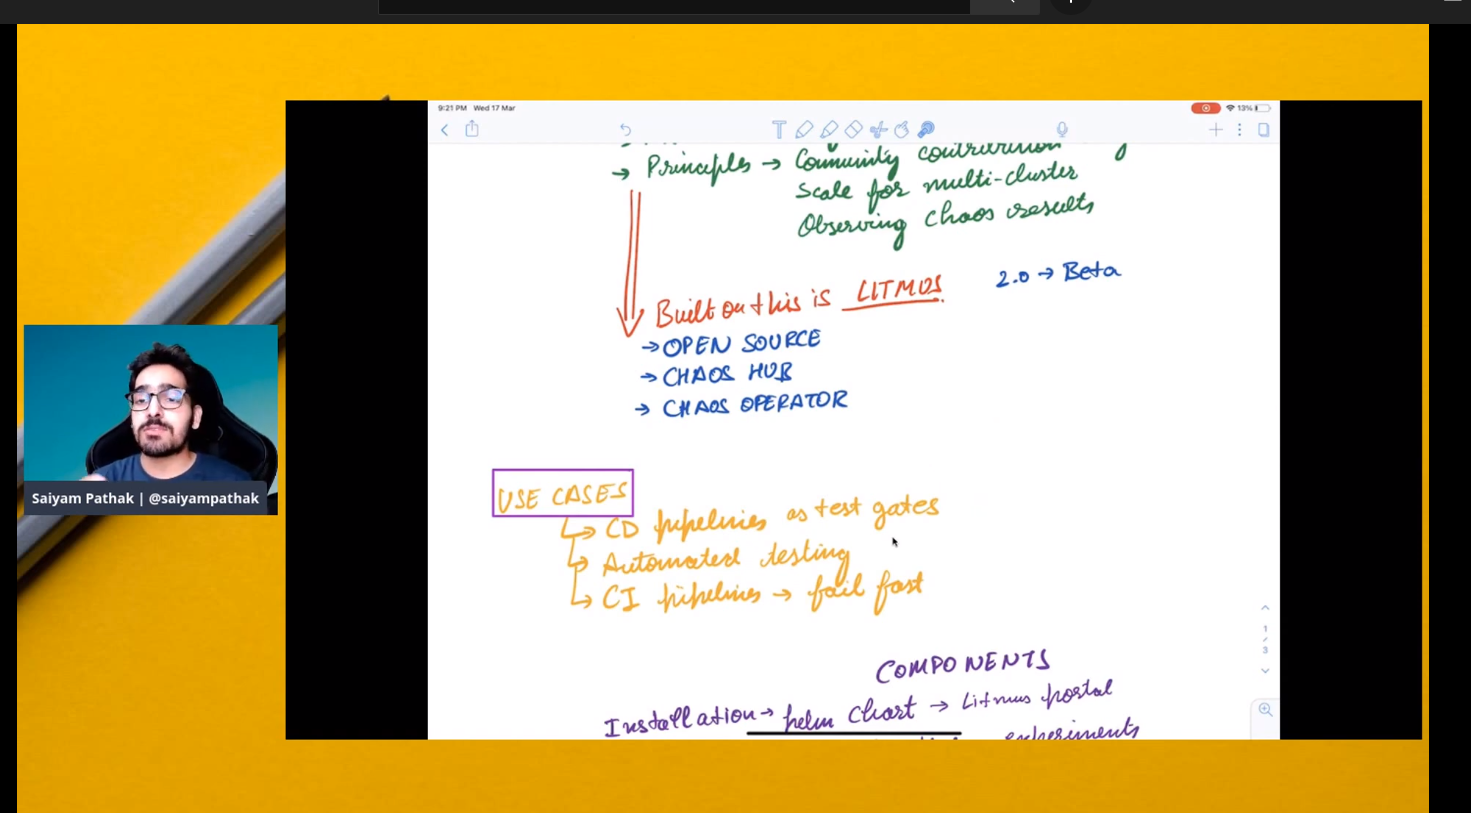 9:21 PM Wed 17 Mar
13%
→ Principles → Community contribution
Scale for multi-cluster
Observing chaos results
Built on this is LITMUS
2.0 → Beta
→ OPEN SOURCE
→ CHAOS HUB
→ CHAOS OPERATOR
USE CASES
CD pipelines as test gates
Automated testing
CI pipelines → fail fast
Saiyam Pathak | @saiyampathak
1
3
COMPONENTS
Installation → helm chart → Litmus portal
experiments